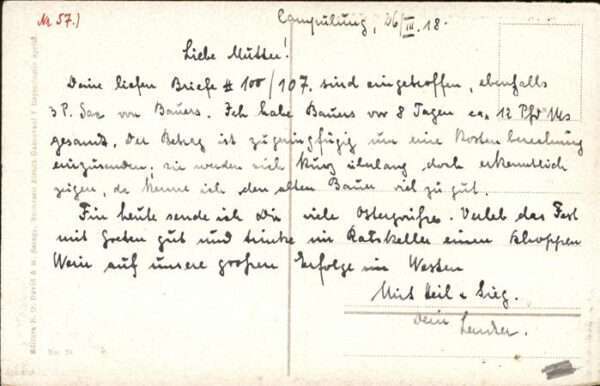 Nr 57.)
Campulung, 26/III.18.
Liebe Mutter!
Deine lieben Briefe # 100/107. sind eingetroffen, ebenfalls
3 P. von Bauers. Ich habe Bauers vor 8 Tagen ca. 12 Pfd
gesandt. Der Betrag ist zu geringfügig um eine Kostenberechnung
einzusenden; sie werden sich kurz über lang doch erkenntlich
zeigen, da kenne ich den alten Bauer viel zu gut.
Für heute sende ich Dir viele Ostergrüsse. Verleb das Fest
mit Greten gut und trinke im Ratskeller einen Schoppen
Wein auf unsere grossen Erfolge im Westen
Mit Heil & Sieg.
Dein